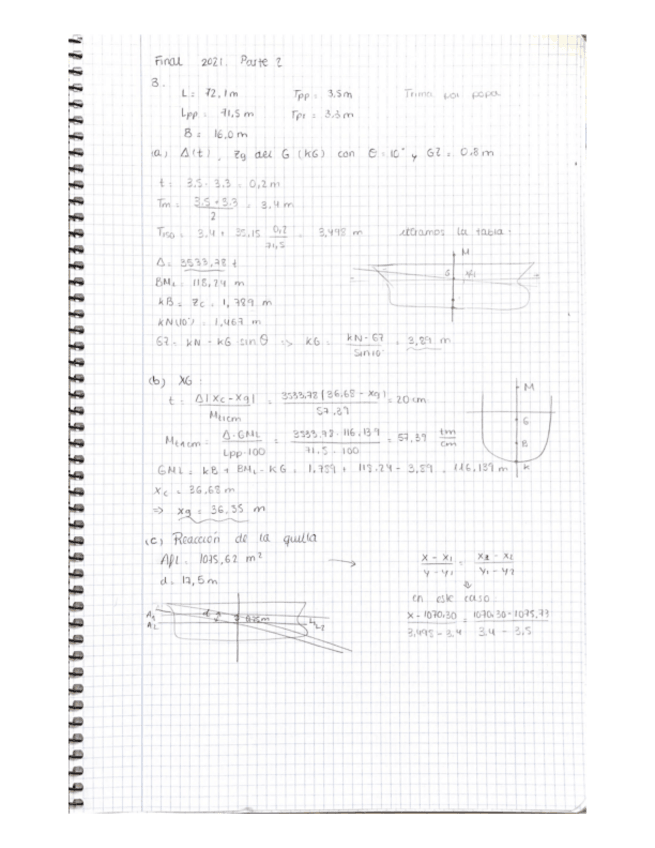 Final 2021. Parte 2
3.
L = 72,1m Tpp = 3.5m Trimo por popa
Lpp = 71,5 m Tpr = 3.3m
B = 16.0 m
(a) Δ(t), Zg del G (KG) con θ = 10° y GZ = 0.8 m
t = 3.5 - 3.3 = 0,2 m
Tm = 3.5 + 3.3 / 2 = 3,4 m
= 3,4 + 35,15 0,2 / 71,5 = 3,498 m entramos la tabla.
Δ = 3533,78 t
BML = 118,24 m
KB = Zc = 1,789 m
KN(10°) = 1,467 m
GZ = KN - KG sin θ => KG = KN - GZ / Sin10° = 3,89 m
M
(b) XG:
t = Δ|Xc - Xg| / Mt1cm = 3533.78 |36.68 - Xg| / 57,39 = 20 cm
Mt1cm = Δ·GML / Lpp·100 = 3533.78 · 116.139 / 71.5 · 100 = 57,39 tm/cm
GML = KB + BML - KG = 1,789 + 118.24 - 3,89 = 116,139 m
Xc = 36,68 m
=> Xg = 36,35 m
M
G
B
K
(c) Reacción de la quilla
AfL = 1075,62 m²
d = 12,5m
x - x1 / y - y1 = x1 - x2 / y1 - y2
en este caso
x - 1070.30 / 3,498 - 3.4 = 1070.30 - 1075,73 / 3.4 - 3.5